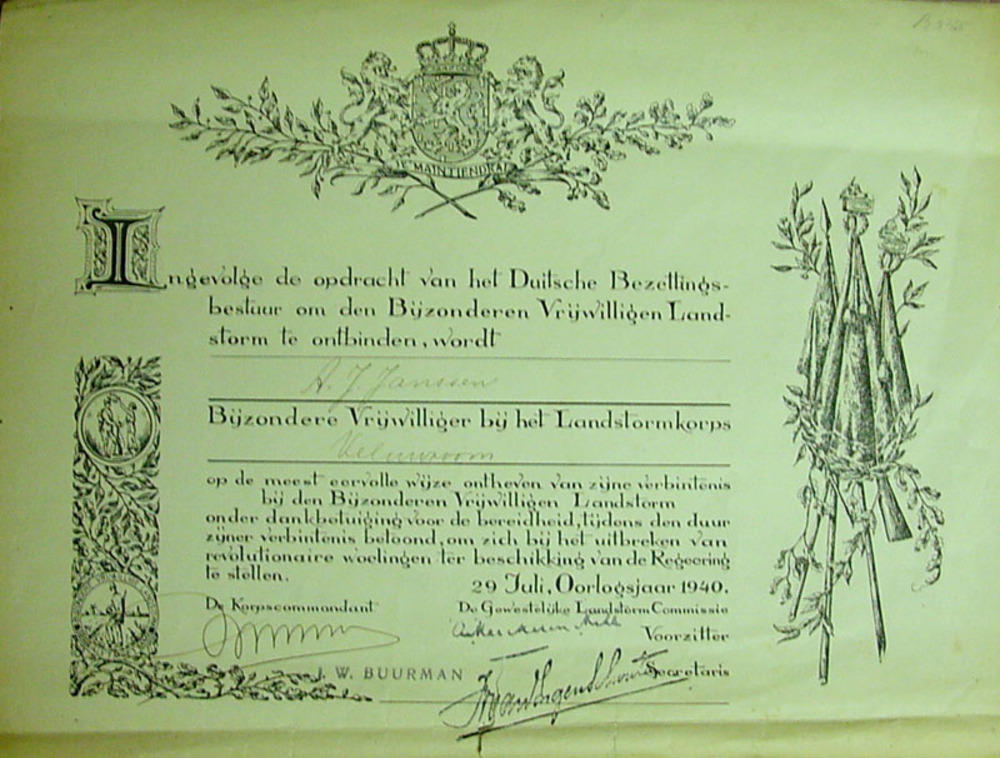 JE MAINTIENDRAI
Ingevolge de opdracht van het Duitsche Bezettings-
bestuur om den Bijzonderen Vrijwilligen Land-
storm te ontbinden, wordt
A. J. Janssen
Bijzondere Vrijwilliger bij het Landstormkorps
Veluwzoom
op de meest eervolle wijze ontheven van zijne verbintenis
bij den Bijzonderen Vrijwilligen Landstorm
onder dankbetuiging voor de bereidheid, tijdens den duur
zijner verbintenis betoond, om zich bij het uitbreken van
revolutionaire woelingen ter beschikking van de Regeering
te stellen.
29 Juli, Oorlogsjaar 1940.
De Korpscommandant
De Gewestelijke Landstorm Commissie
Voorzitter
J. W. BUURMAN
Secretaris